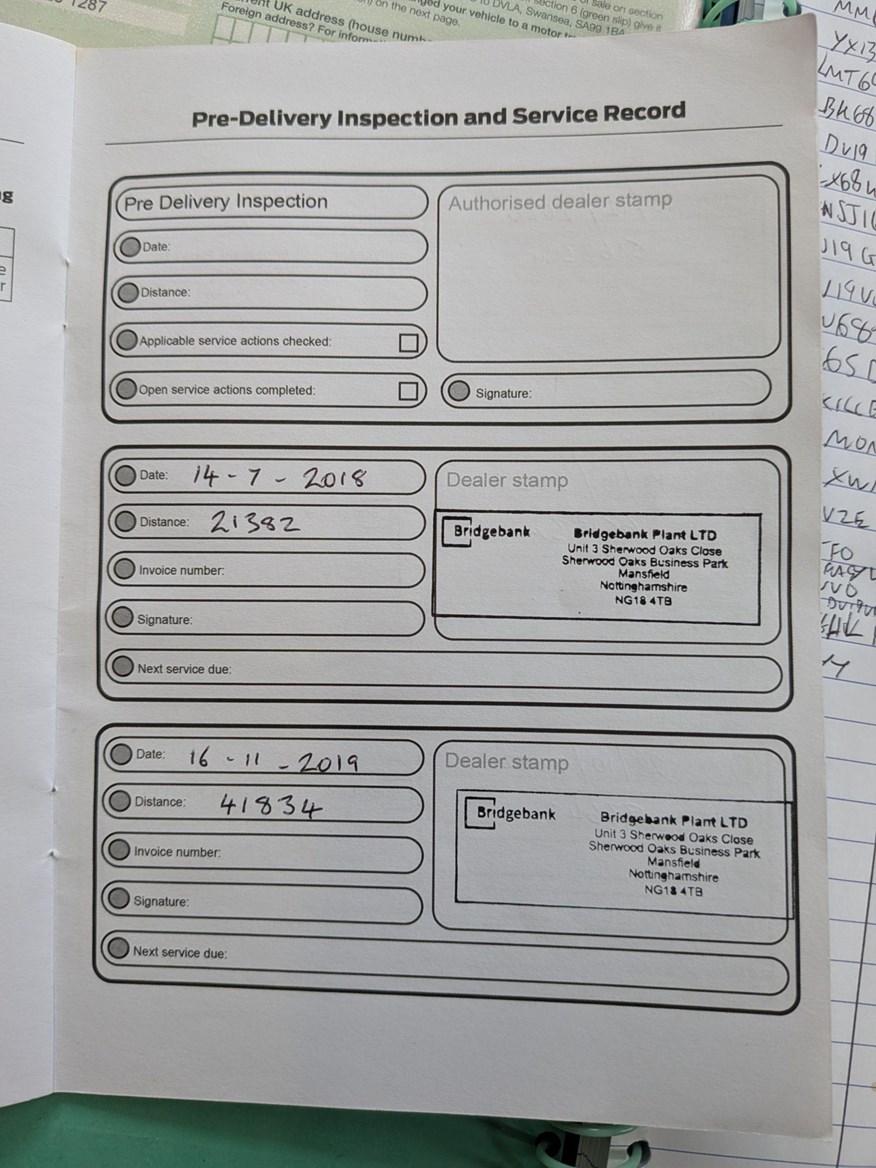 1287
ent UK address (house numb
Foreign address? For inform
on the next page.
ged your vehicle to a motor
to DVLA, Swansea, SA99 1BA
section 6 (green slip) give
sale on section
Pre-Delivery Inspection and Service Record
Pre Delivery Inspection
Authorised dealer stamp
Date:
Distance:
Applicable service actions checked:
Open service actions completed:
Signature:
Date: 14-7-2018
Dealer stamp
Distance: 21382
Bridgebank
Bridgebank Plant LTD
Unit 3 Sherwood Oaks Close
Sherwood Oaks Business Park
Mansfield
Nottinghamshire
NG18 4TB
Invoice number:
Signature:
Next service due:
Date: 16-11-2019
Dealer stamp
Distance: 41834
Bridgebank
Bridgebank Plant LTD
Unit 3 Sherwood Oaks Close
Sherwood Oaks Business Park
Mansfield
Nottinghamshire
NG18 4TB
Invoice number:
Signature:
Next service due:
YX13
LMT6
BK68
DV19
J19 G